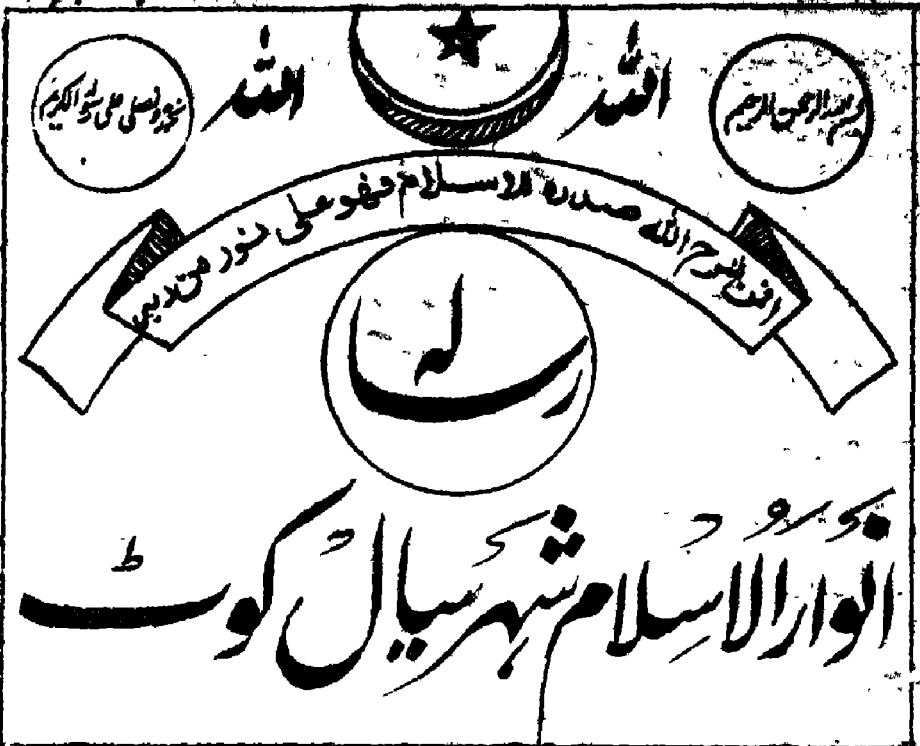 بسم اللہ الرحمن الرحیم
اللہ
اللہ
نحمدہ ونصلی علی رسولہ الکریم
افمن شرح اللہ صدرہ للاسلام فھو علی نور من ربہ
رسالہ
انوار الاسلام شہر سیال کوٹ